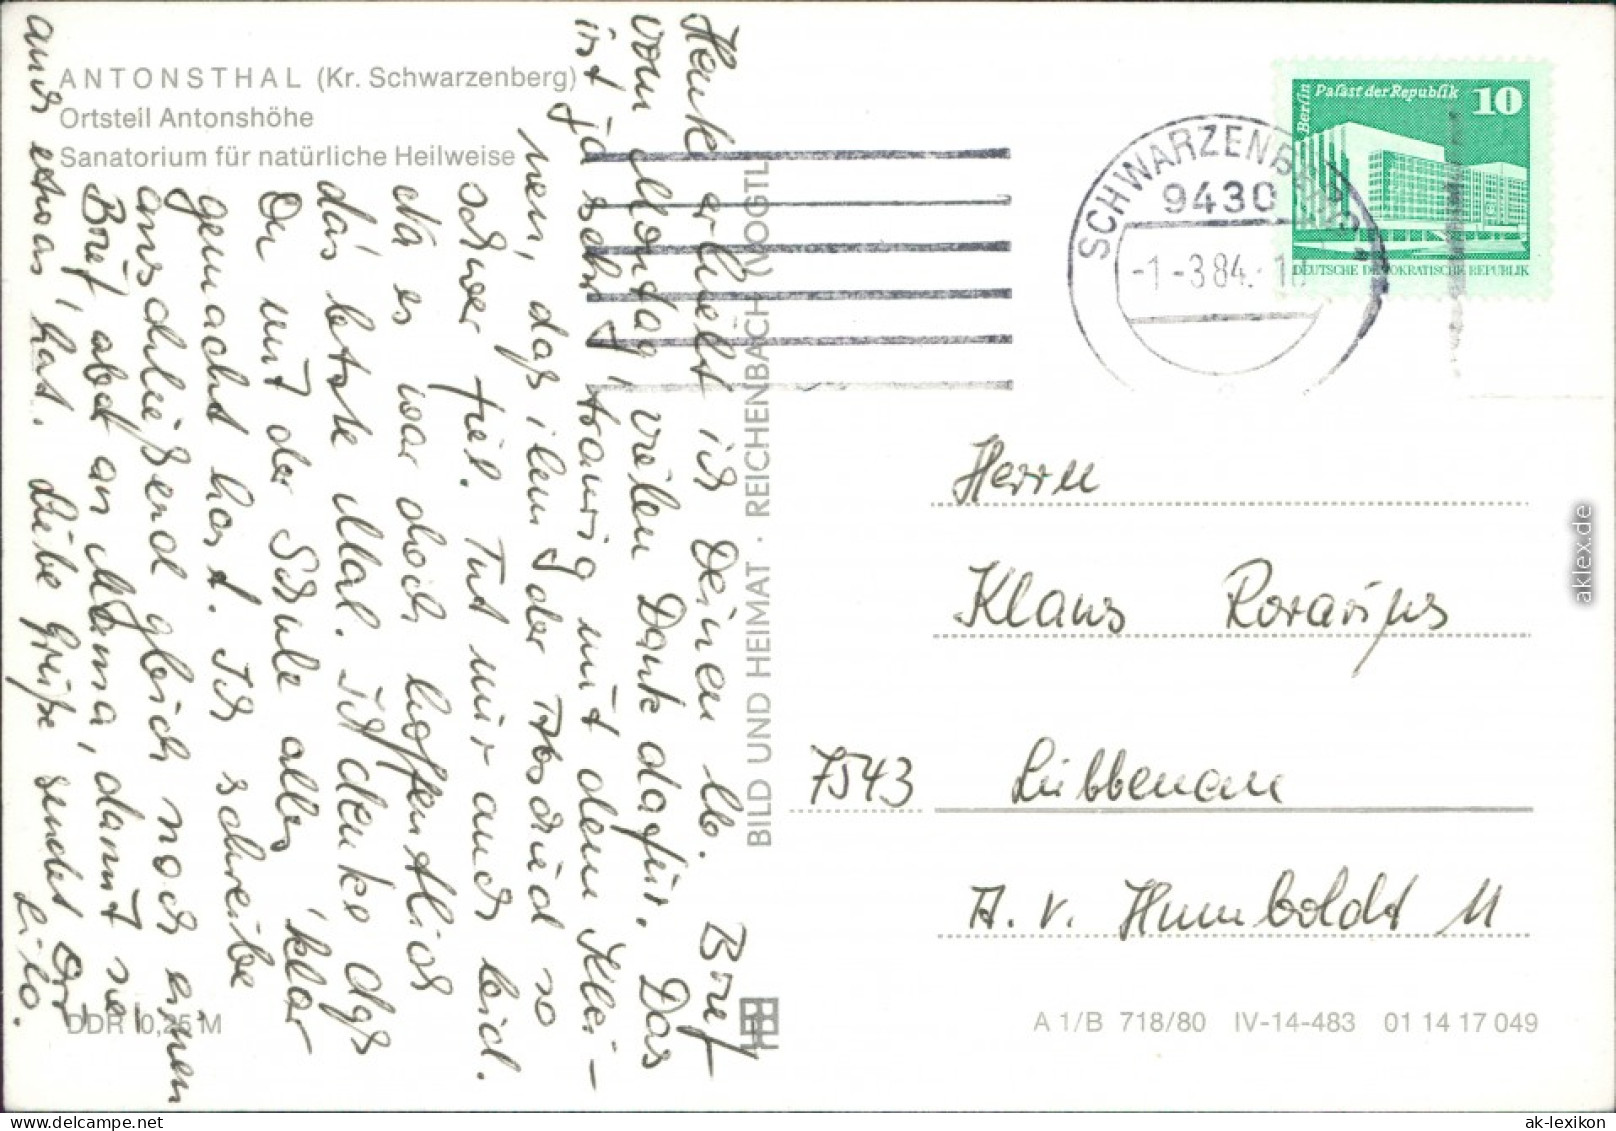 ANTONSTHAL (Kr. Schwarzenberg)
Ortsteil Antonshöhe
Sanatorium für natürliche Heilweise
Heute erhielt ich Deinen lb. Brief
vom Montag, vielen Dank dafür. Das
ist ja sehr traurig mit dem Klei-
nen, daß ihm der Abschied so
schwer fiel. Tut mir auch leid.
da es war doch hoffentlich
das letzte Mal. Ich denke daß
Du mit der Schule alles klar
gemacht hast. Ich schreibe
anschließend gleich noch einen
Brief aber an Mama, damit sie
auch etwas hat. Liebe Grüße sendet Dir
Lilo.
BILD UND HEIMAT · REICHENBACH (VOGTL
DDR 0,25 M
SCHWARZENBERG
9430
-1.-3.84.-18
Berlin
Palast der Republik
10
DEUTSCHE DEMOKRATISCHE REPUBLIK
Herrn
Klaus
7543 Lübbenau
A. v. Humboldt 11
A 1/B 718/80 IV-14-483 01 14 17 049
aklex.de
ak-lexikon